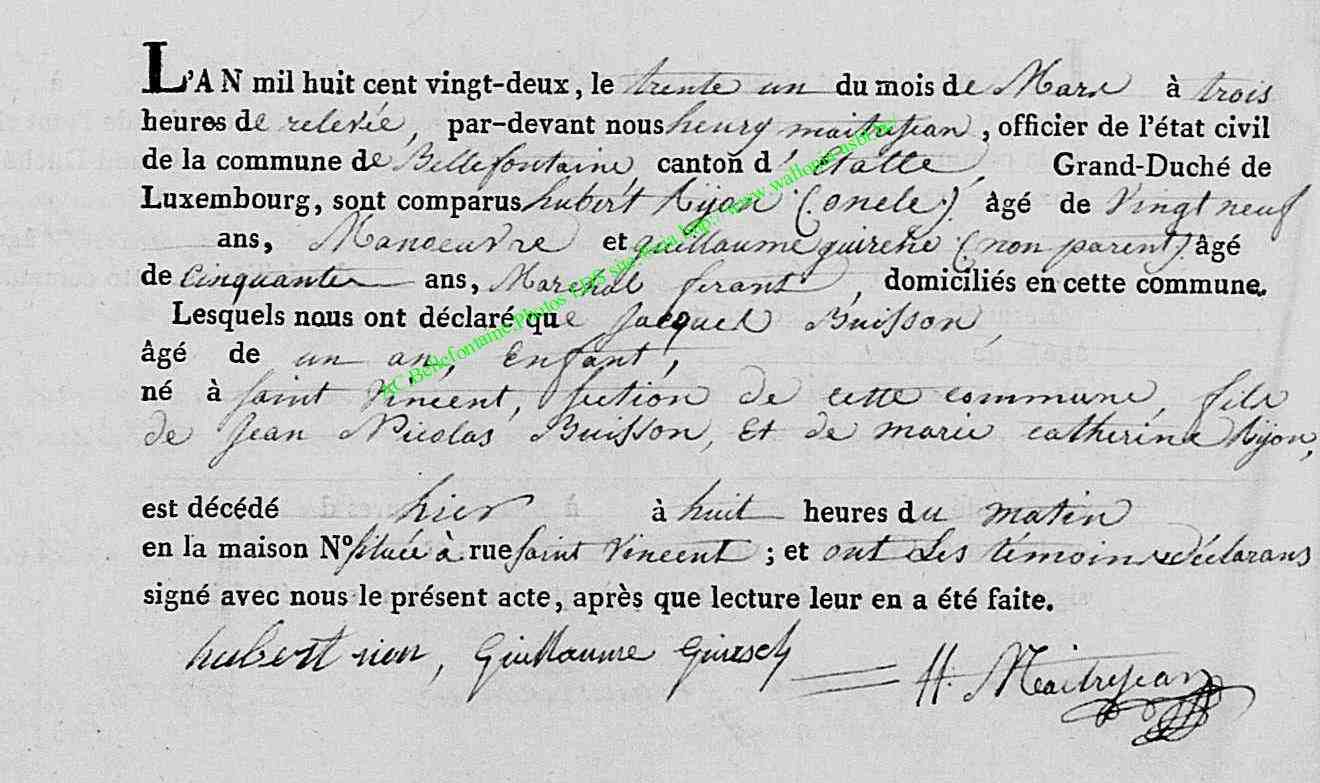 L'AN mil huit cent vingt-deux, le trente un du mois de Mars à trois
heures de relevée, par-devant nous henry maitrejean, officier de l'état civil
de la commune de Bellefontaine, canton d'Etalle, Grand-Duché de
Luxembourg, sont comparus hubert Rijon (oncle) âgé de Vingt neuf
ans, Manoeuvre et guillaume guirche (non parent) âgé
de Cinquante ans, Marchal ferant, domiciliés en cette commune.
Lesquels nous ont déclaré que Jacques Buisson,
âgé de un an, Enfant,
né à saint Vincent, section de cette commune, fils
de Jean Nicolas Buisson, Et de marie catherine Rijon,
est décédé hier à huit heures du matin
en la maison N° située à rue saint Vincent ; et ont Les témoins déclarans
signé avec nous le présent acte, après que lecture leur en a été faite.
hubert rion, Guillaume Guirsch H. Maitrejean
AC Bellefontaine Photos site